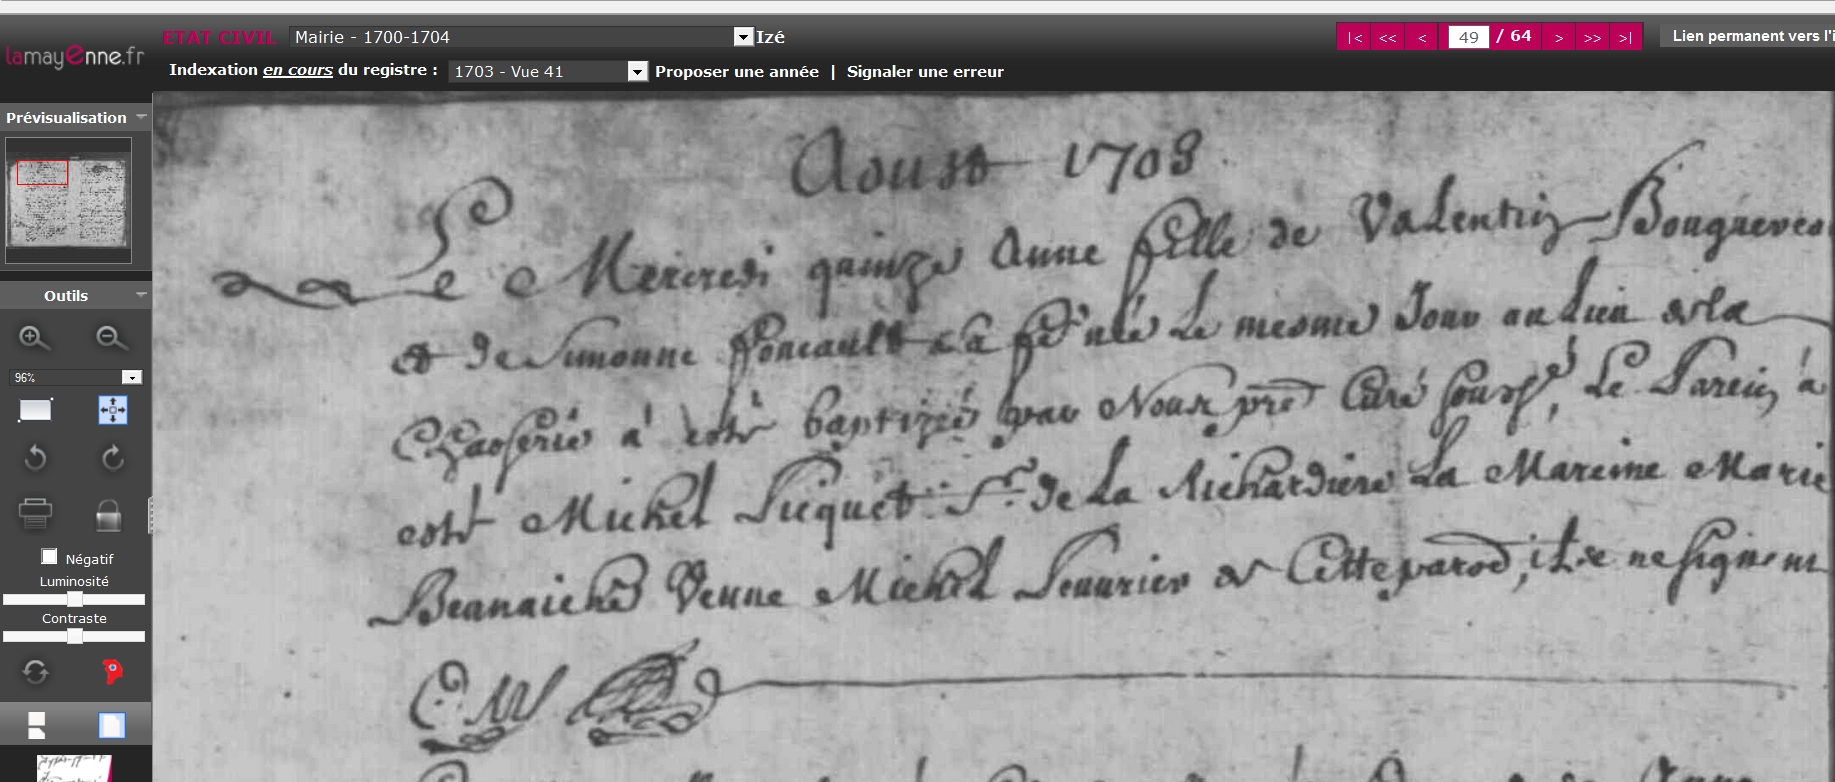 lamayenne.fr
ETAT CIVIL Mairie - 1700-1704 Izé
|< << < 49 / 64 > >> >|
Lien permanent vers l'i
Indexation en cours du registre : 1703 - Vue 41 Proposer une année | Signaler une erreur
Prévisualisation
Outils
96%
Négatif
Luminosité
Contraste
Aoust 1703
Le Mercredi quinze Anne fille de Valentin
et de Simonne foucault sa fe née Le mesme Jour au lieu de la
à estr baptizée par Nous pre Curé soussé, Le Parein a
esté Michel Picquet Sr de La Richardiere La Mareine Marie
veuue Michel de Cette parod, ils ne signent